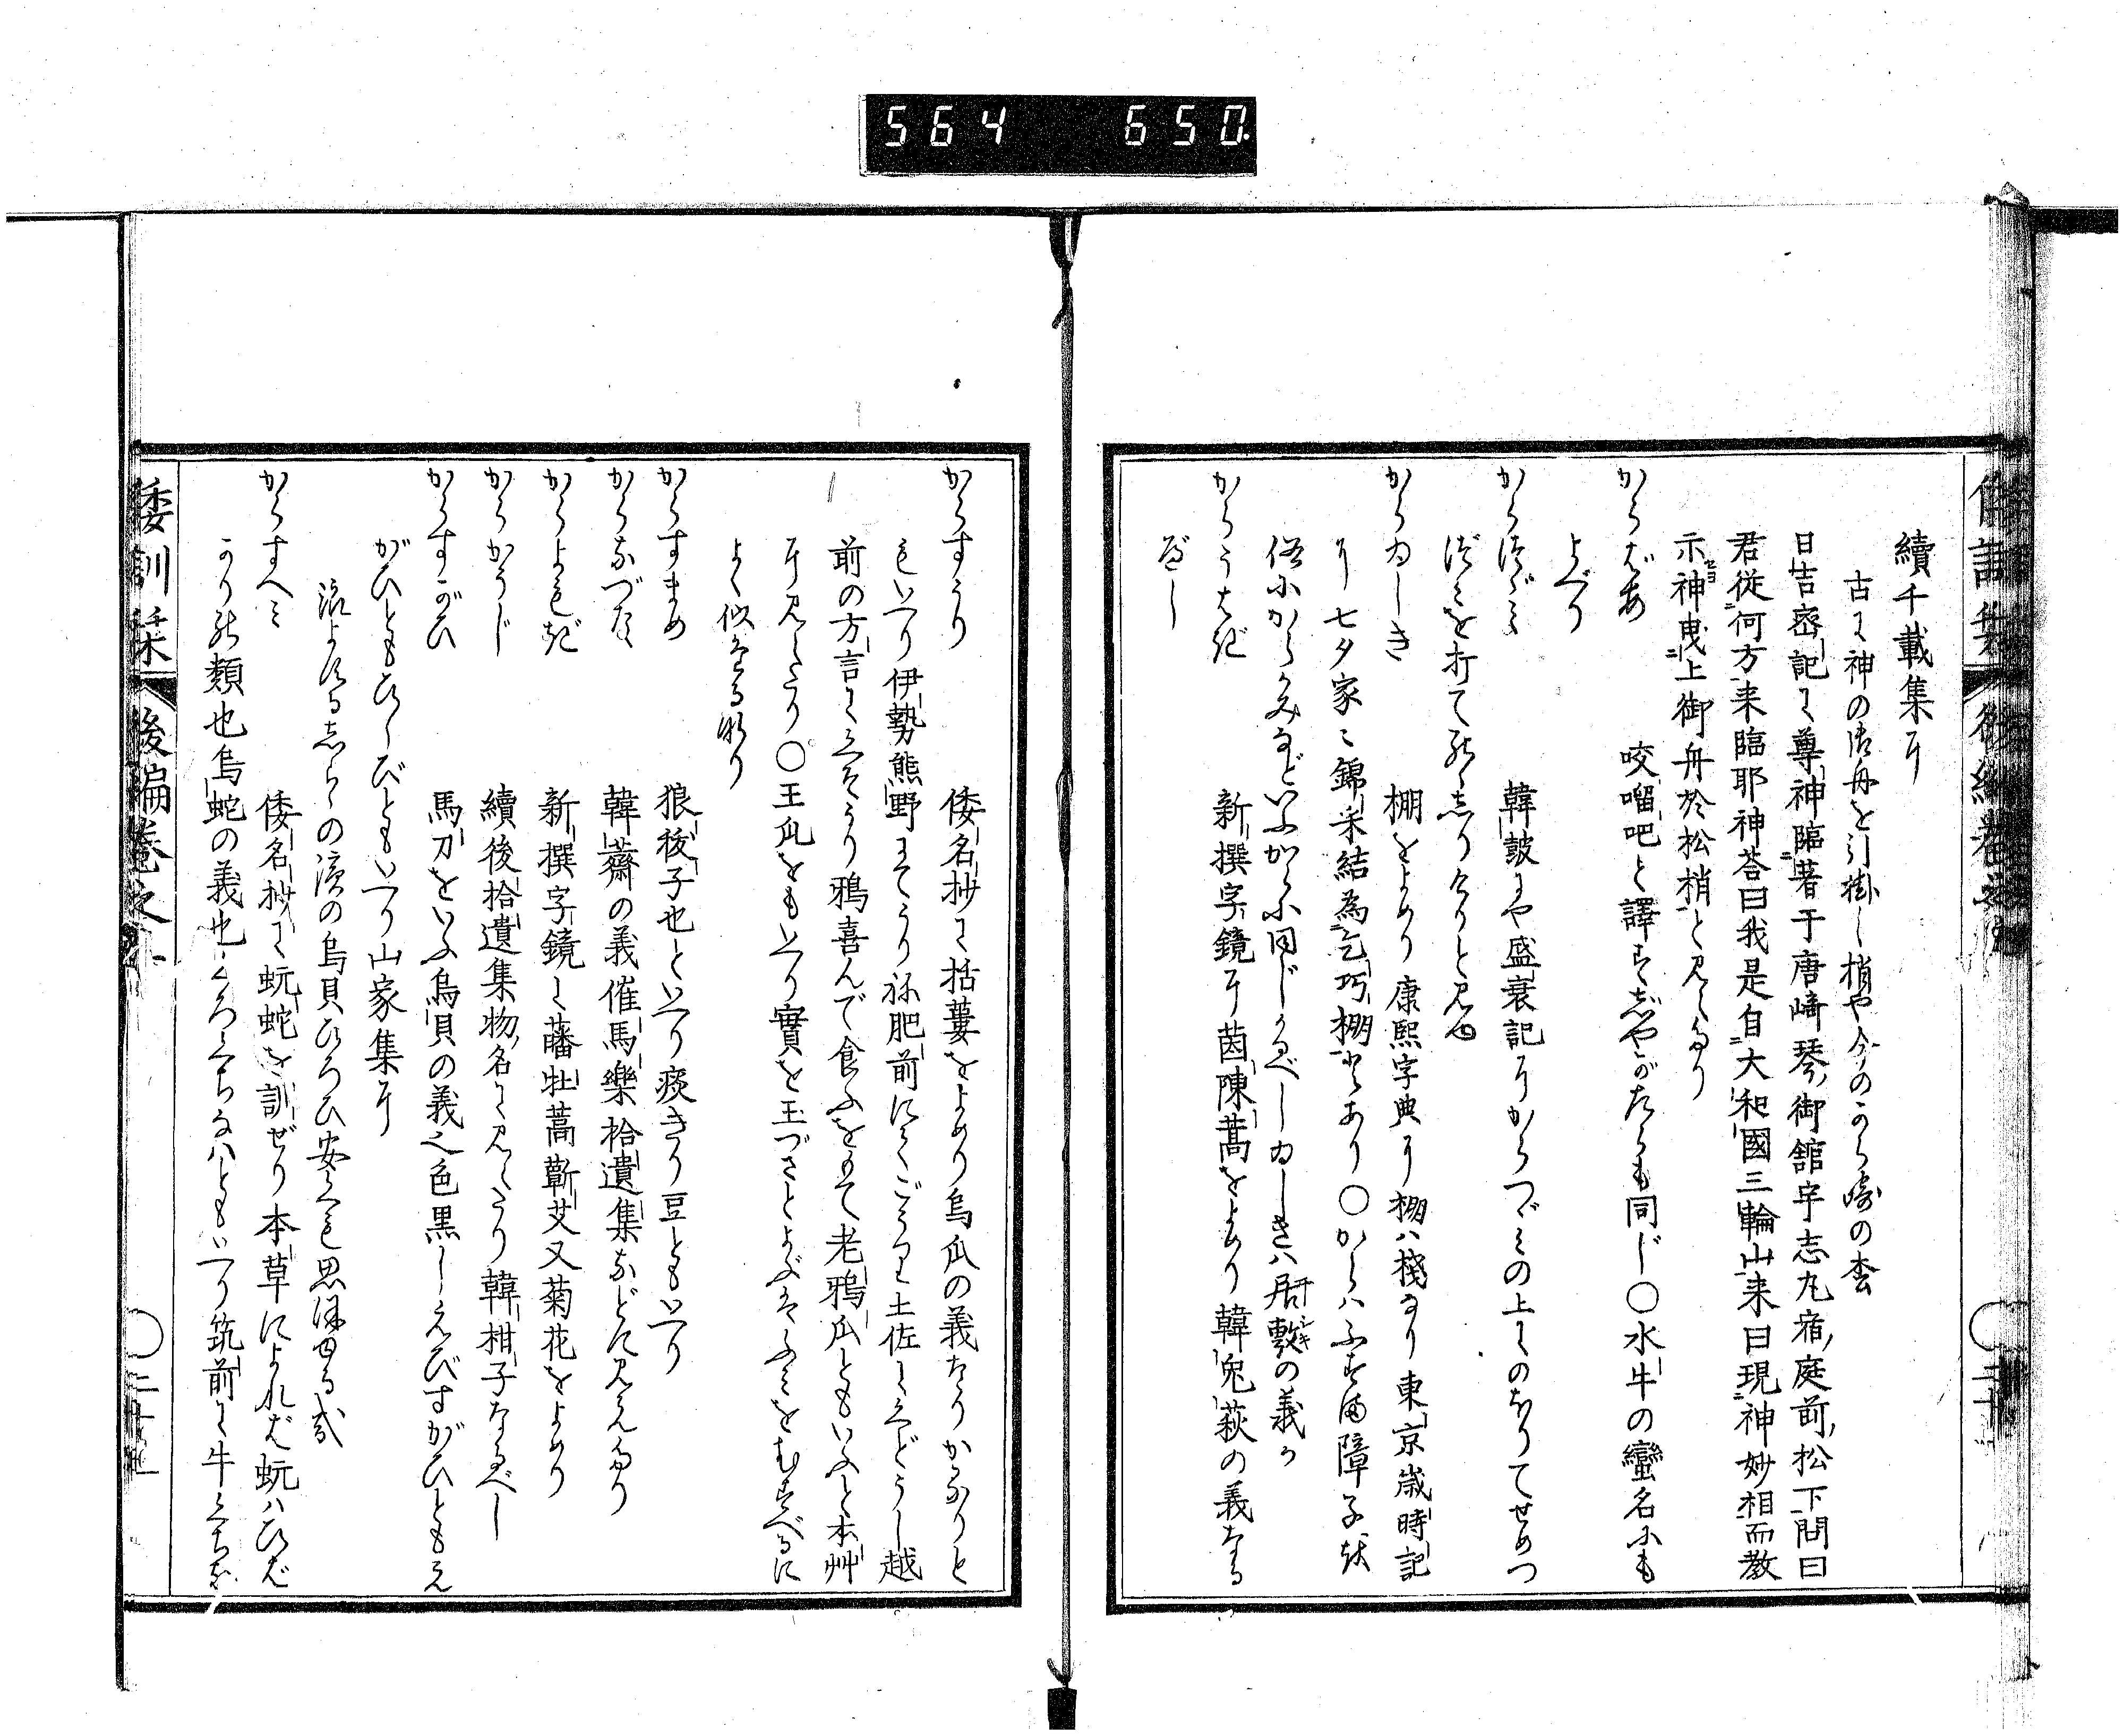 564 650
續千載集に
古へ神の御舟を引掛し梢や今のから崎の松
日吉密記に尊神臨著于唐崎琴御舘宇志丸宿庭前松下問曰
君従何方来臨耶神荅曰我是自大和國三輪山来曰現神妙相而教
示神曳上御舟於松梢と見えたり
からばあ 咬𠺕吧と譯す じやがたらも同じ〇水牛の蠻名にも
よべり
からつづみ 韓皷にや盛衰記にからつづみの上にのぼりてせめつ
づみを打てのゝしりけりと見ゆ
からゐしき 棚をよめり康熙字典に棚ハ棧なり東京歳時記
に七夕家々錦采結為乞巧棚とあり〇からハふすま障子を
俗にからかみなどいふからに同じかるべしゐしきハ居敷の義か
からうはぎ 新撰字鏡に茵陳蒿をよめり韓兎萩の義なる
べし
からすうり 倭名抄に括蔞をよめり烏瓜の義なりからうりと
もいへり伊勢熊野にてうり祢肥前にてごうり土佐にてどうし越
前の方言にくそうり鴉喜んで食ふをもて老鴉瓜ともいふと本艸
に見えたり〇王瓜をもいへり實を玉づさとよぶはふみをむすべるに
よく似たる也
からすまめ 狼稜子也といへり痰きり豆ともいへり
からなづな 韓薺の義催馬樂拾遺集などに見えたり
からよもぎ 新撰字鏡に蘠牡蒿蘄艾又菊花をよめり
からかうじ 續後拾遺集物名に見えたり韓柑子なるべし
からすがひ 馬刀をいふ烏貝の義也色黒しえびすがひともえ
がひともひゝびともいへり山家集に
波よするしらゝの濱の烏貝ひろひ安くも思ほゆる哉
からすへミ 倭名抄に蚖蛇を訓ぜり本草によれバ蚖ハひば
かりの類也烏蛇の義也くろくちなハともいへり筑前に牛くちな
倭訓栞 後編巻之